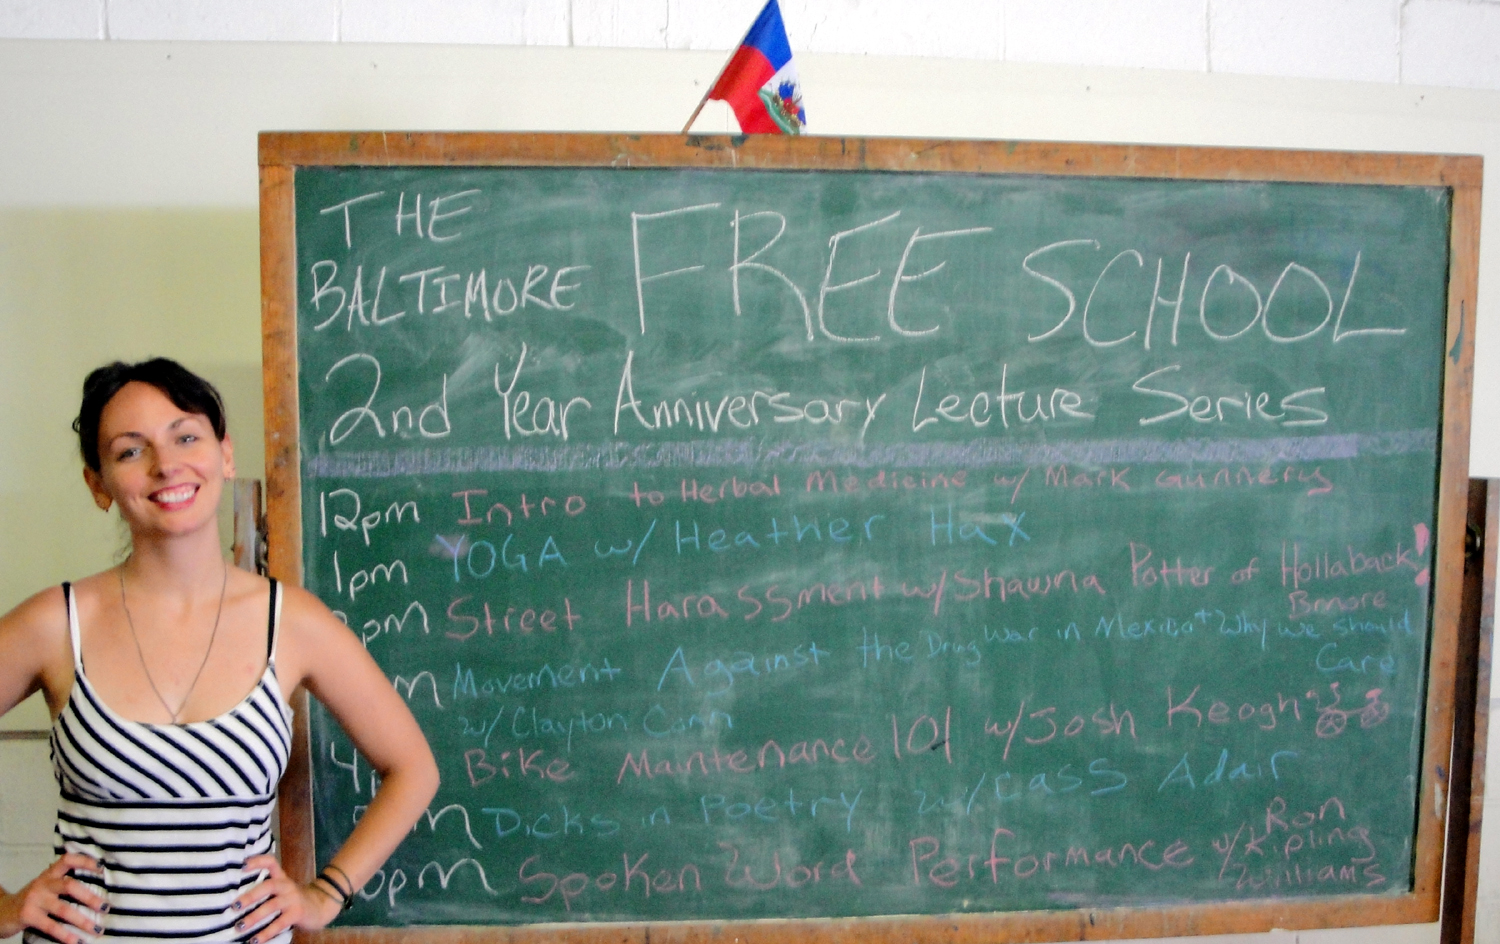 THE
BALTIMORE FREE SCHOOL
2nd Year Anniversary Lecture Series
12pm Intro to Herbal Medicine w/ Mark Gunnery
1pm YOGA w/ Heather Hax
pm Street Harassment w/ Shawna Potter of Hollaback!
Bmore
m Movement Against the Drug War in Mexico + Why we should
Care
w/ Clayton Conn
4 Bike Maintenance 101 w/ Josh Keogh
m Dicks in Poetry w/ Cass Adair
pm Spoken Word Performance w/ Ron
Kipling
Williams